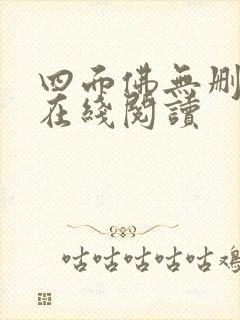 四面佛無删
在綫閱讀
咕咕咕咕咕鷄